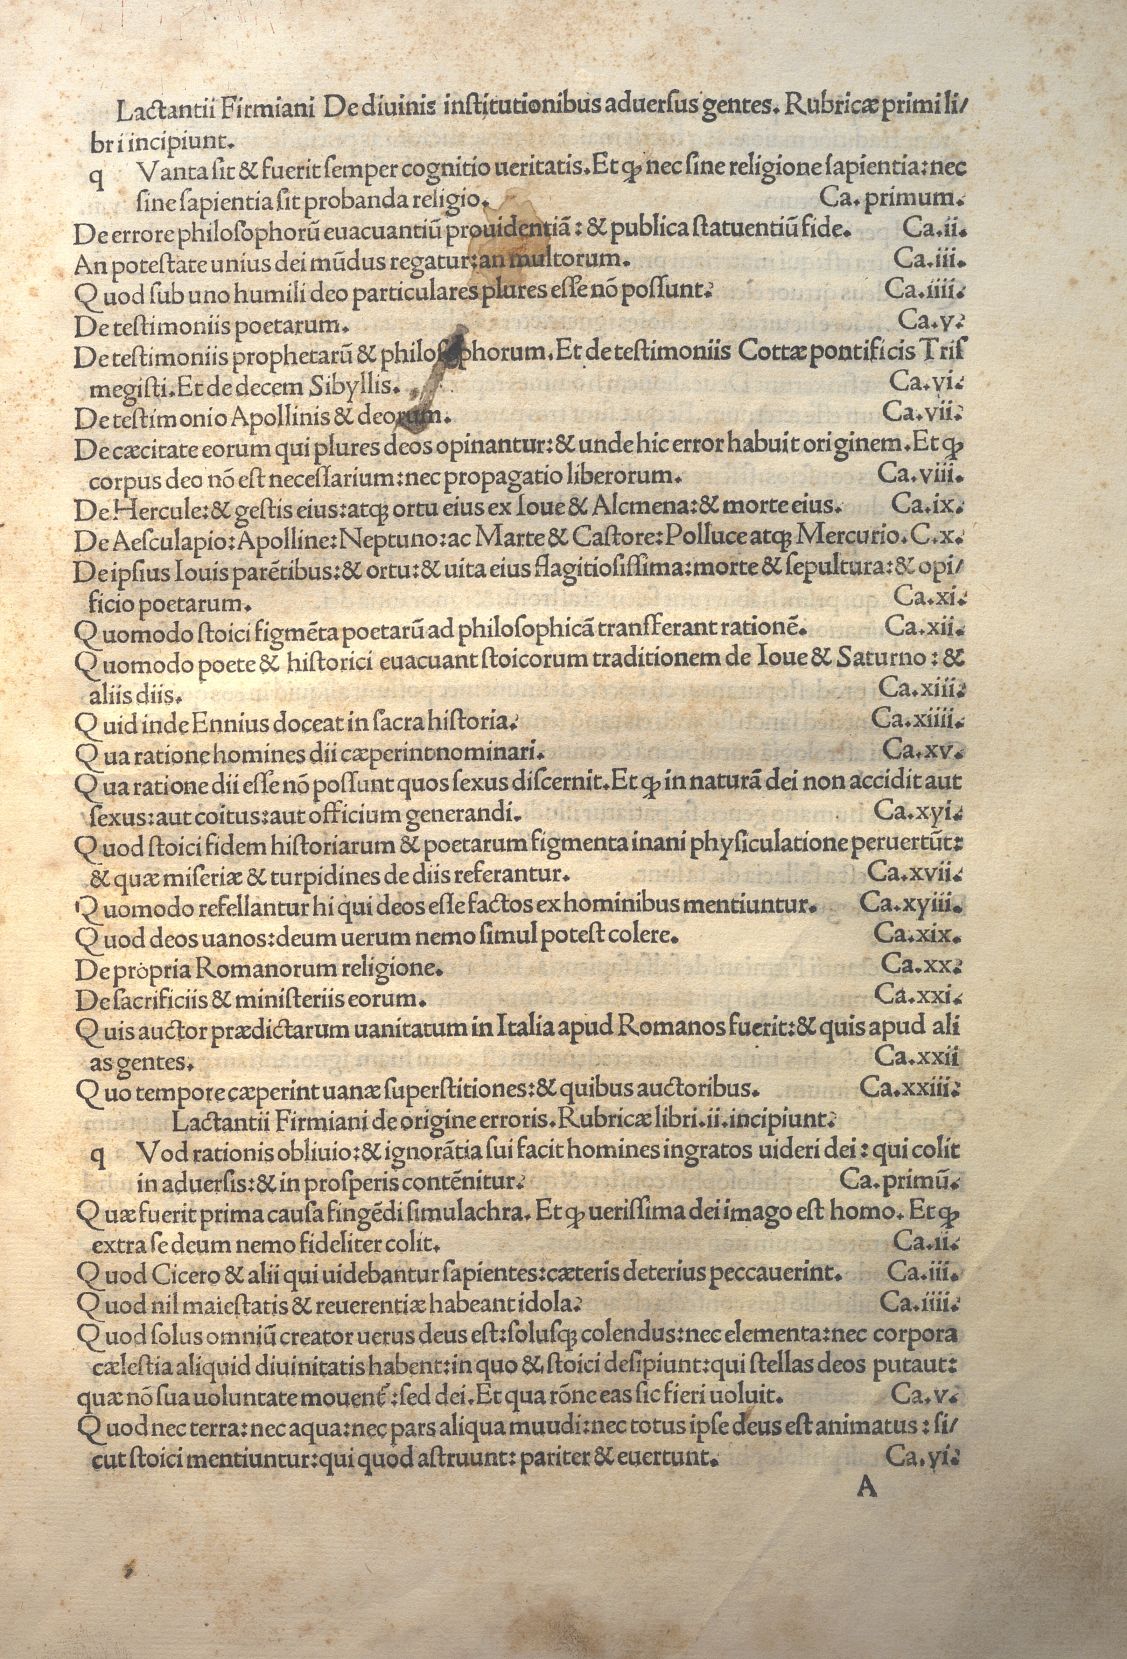 Lactantii Firmiani De diuinis institutionibus aduersus gentes. Rubricæ primi li/
bri incipiunt.
q Vanta sit & fuerit semper cognitio ueritatis. Et ꝙ nec sine religione sapientia: nec
sine sapientia sit probanda religio. Ca. primum.
De errore philosophorũ euacuantiũ prouidentiã: & publica statuentiũ fide. Ca.ii.
An potestate unius dei mũdus regatur: an multorum. Ca.iii.
Quod sub uno humili deo particulares plures esse nõ possunt. Ca.iiii.
De testimoniis poetarum. Ca.v.
De testimoniis prophetarũ & philosophorum. Et de testimoniis Cottæ pontificis Tris
megisti. Et de decem Sibyllis. Ca.vi.
De testimonio Apollinis & deorum. Ca.vii.
De cæcitate eorum qui plures deos opinantur: & unde hic error habuit originem. Et ꝙ
corpus deo nõ est necessarium: nec propagatio liberorum. Ca.viii.
De Hercule: & gestis eius: atqꝫ ortu eius ex Ioue & Alcmena: & morte eius. Ca.ix.
De Aesculapio: Apolline: Neptuno: ac Marte & Castore: Polluce atqꝫ Mercurio. C.x.
De ipsius Iouis parẽtibus: & ortu: & uita eius flagitiosissima: morte & sepultura: & opi/
ficio poetarum. Ca.xi.
Quomodo stoici figmẽta poetarũ ad philosophicã transferant rationẽ. Ca.xii.
Quomodo poete & historici euacuant stoicorum traditionem de Ioue & Saturno: &
aliis diis. Ca.xiii.
Quid inde Ennius doceat in sacra historia. Ca.xiiii.
Qua ratione homines dii cæperint nominari. Ca.xv.
Qua ratione dii esse nõ possunt quos sexus discernit. Et ꝙ in naturã dei non accidit aut
sexus: aut coitus: aut officium generandi. Ca.xvi.
Quod stoici fidem historiarum & poetarum figmenta inani physiculatione peruertũt:
& quæ miseriæ & turpidines de diis referantur. Ca.xvii.
Quomodo refellantur hi qui deos esse factos ex hominibus mentiuntur. Ca.xviii.
Quod deos uanos: deum uerum nemo simul potest colere. Ca.xix.
De propria Romanorum religione. Ca.xx.
De sacrificiis & ministeriis eorum. Ca.xxi.
Quis auctor prædictarum uanitatum in Italia apud Romanos fuerit: & quis apud ali
as gentes. Ca.xxii
Quo tempore cæperint uanæ superstitiones: & quibus auctoribus. Ca.xxiii.
Lactantii Firmiani de origine erroris. Rubricæ libri.ii.incipiunt.
q Vod rationis obliuio: & ignorãtia sui facit homines ingratos uideri dei: qui colit
in aduersis: & in prosperis contẽnitur. Ca. primũ.
Quæ fuerit prima causa fingẽdi simulachra. Et ꝙ uerissima dei imago est homo. Et ꝙ
extra se deum nemo fideliter colit. Ca.ii.
Quod Cicero & alii qui uidebantur sapientes: cæteris deterius peccauerint. Ca.iii.
Quod nil maiestatis & reuerentiæ habeant idola. Ca.iiii.
Quod solus omniũ creator uerus deus est: solusqꝫ colendus: nec elementa: nec corpora
cælestia aliquid diuinitatis habent: in quo & stoici desipiunt: qui stellas deos putaut:
quæ nõ sua uoluntate mouent᷑: sed dei. Et qua rõne eas sic fieri uoluit. Ca.v.
Quod nec terra: nec aqua: nec pars aliqua muudi: nec totus ipse deus est animatus: si/
cut stoici mentiuntur: qui quod astruunt: pariter & euertunt. Ca.vi.
A